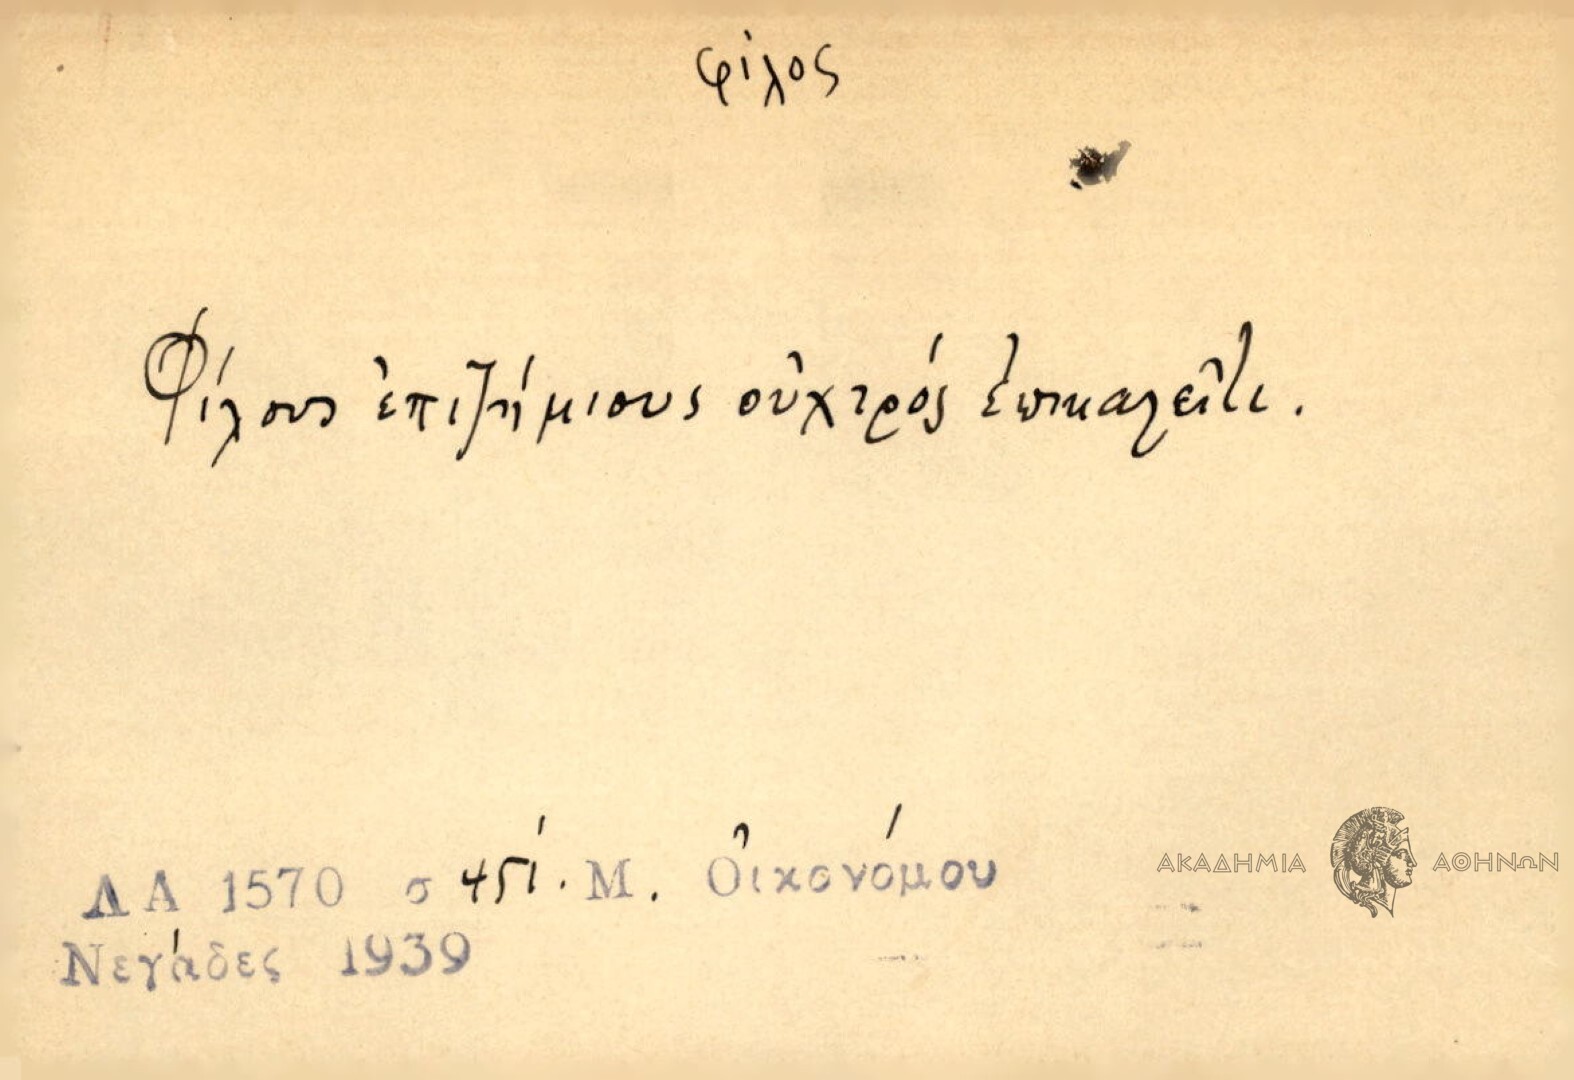 φίλος
Φίλους ἐπιζήμιους οὐχτρός ἐπικαλεῖτι.
ΛΑ 1570 σ 451. Μ. Οἰκονόμου
Νεγάδες 1939
ΑΚΑΔΗΜΙΑ ΑΘΗΝΩΝ